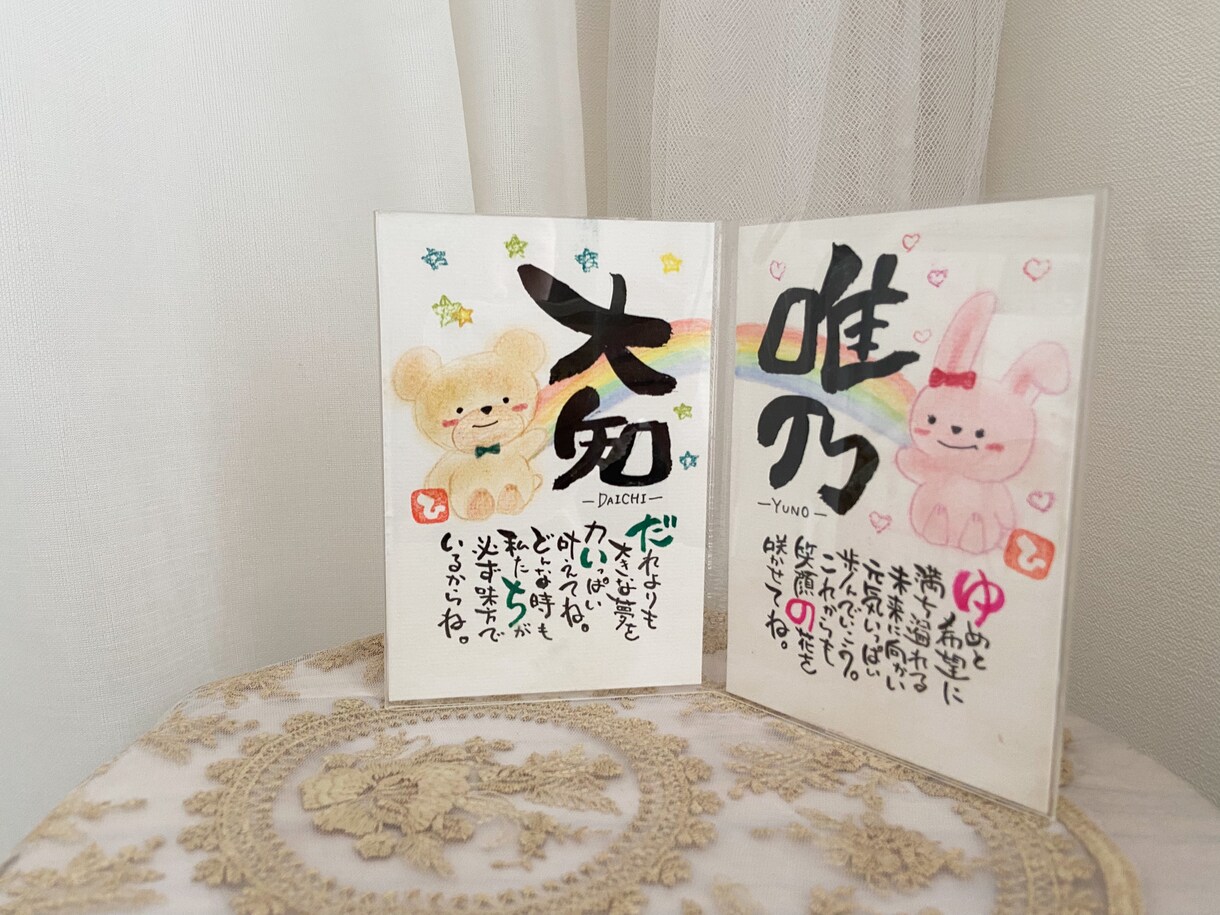 大知
—DAICHI—
だれよりも
大きな夢を
力いっぱい
叶えてね。
どんな時も
私たちが
必ず味方で
いるからね。
ひ
唯乃
—YUNO—
ゆめと
希望に
満ち溢れる
未来に向かい
元気いっぱい
歩んでいこう。
これからも
笑顔の花を
咲かせてね。
ひ